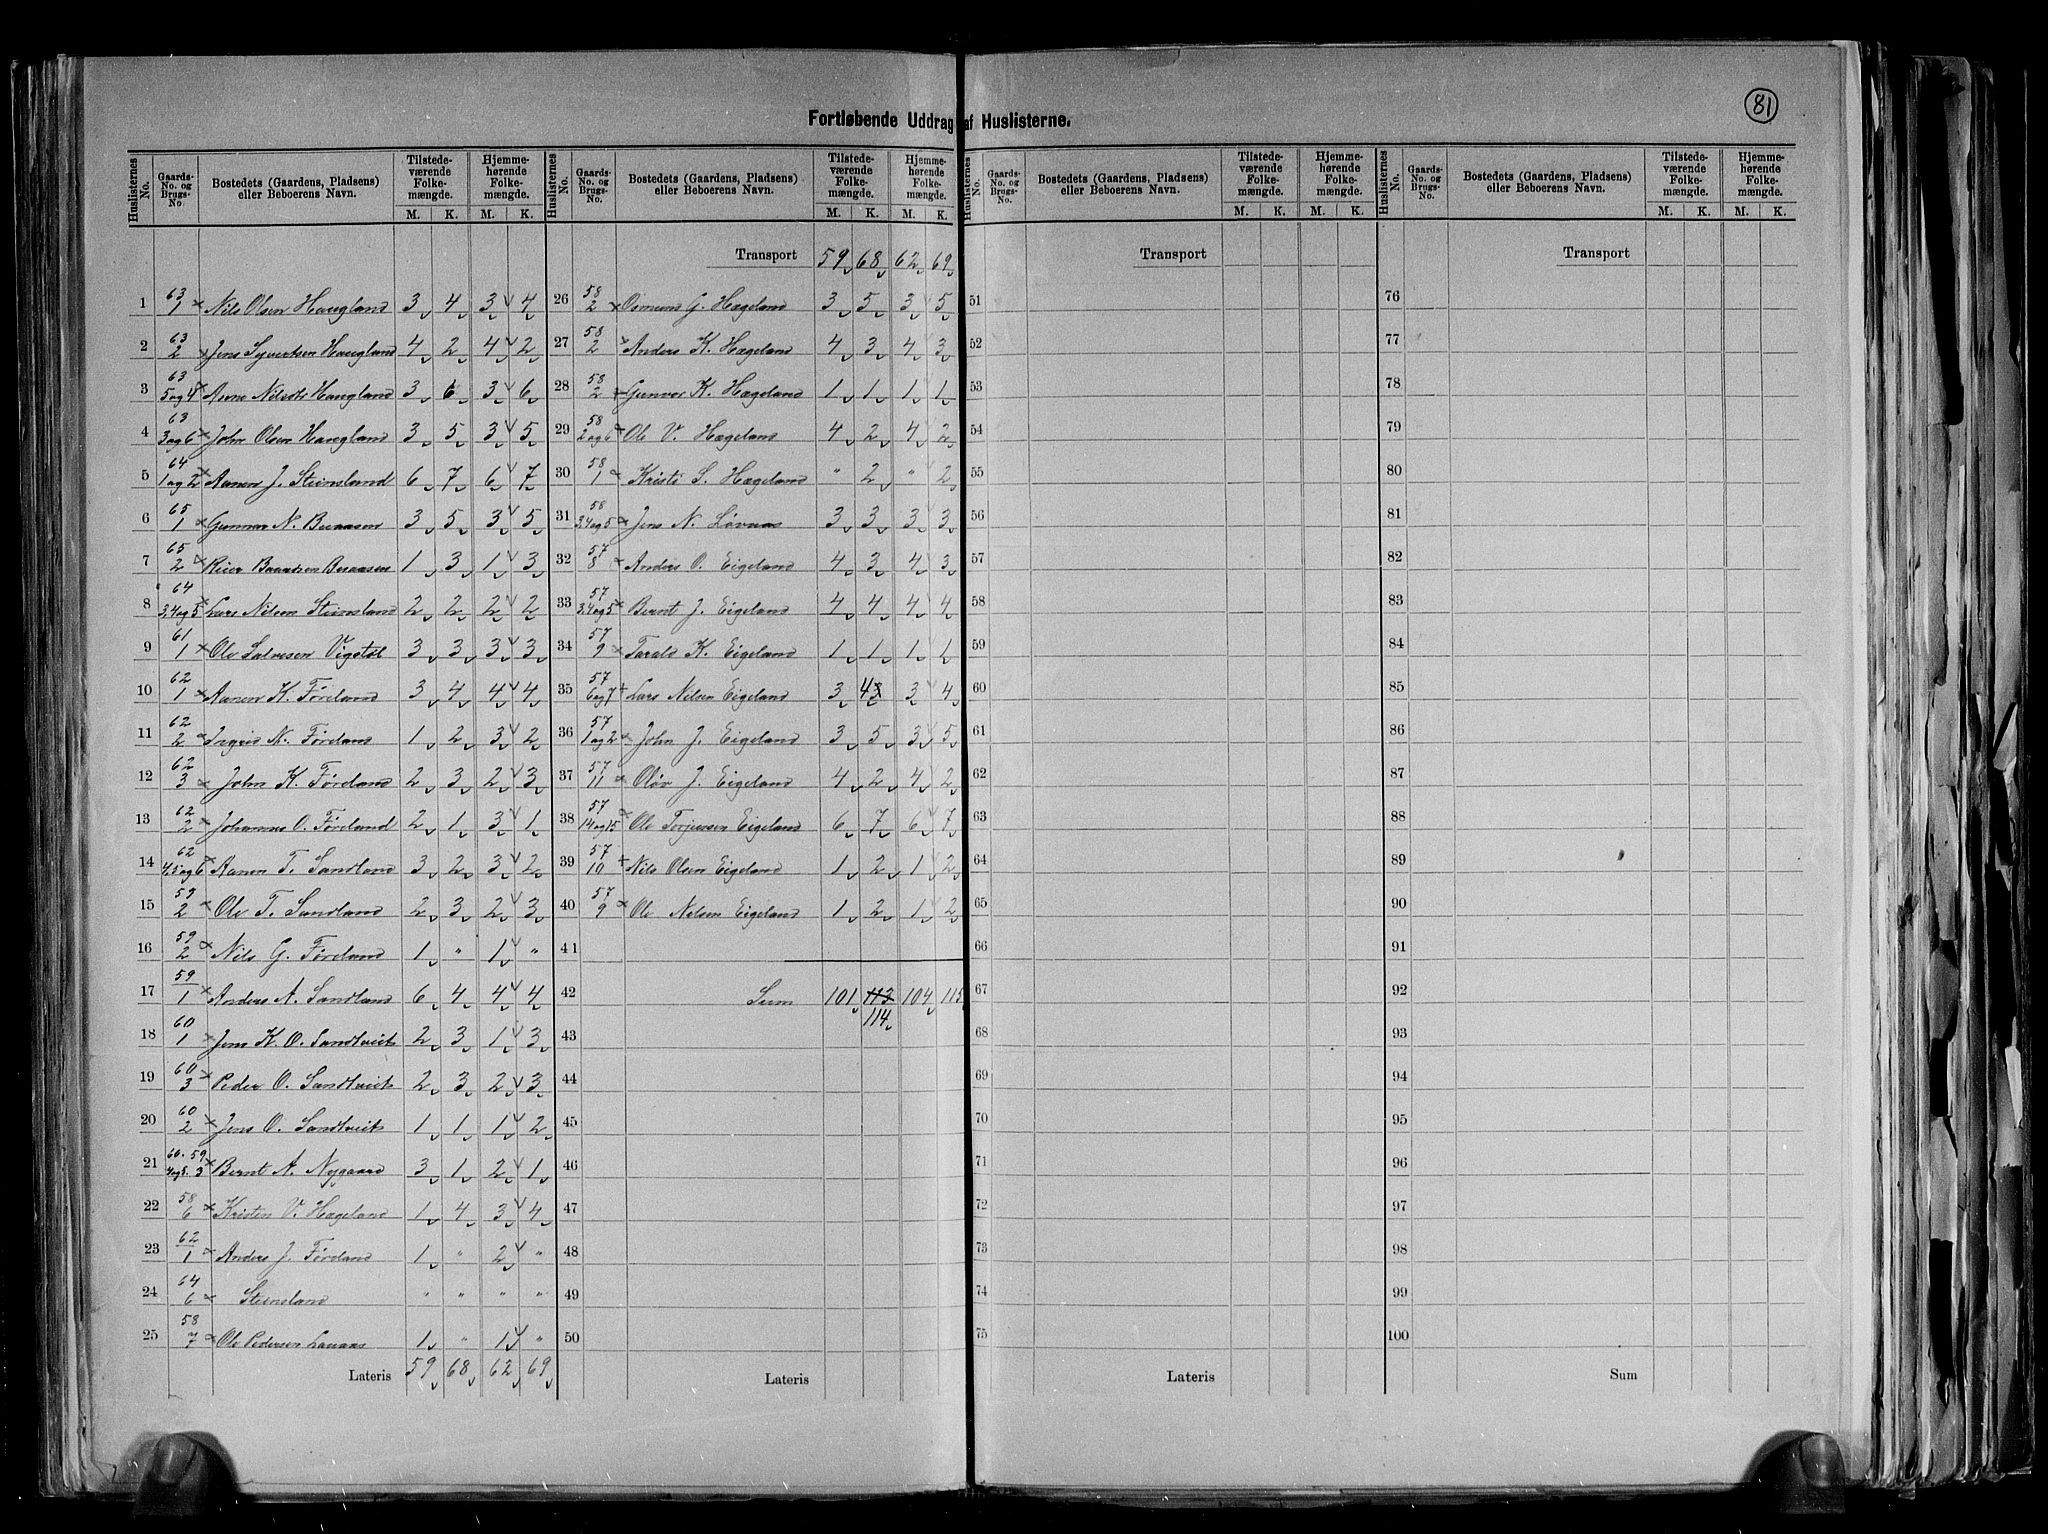 81
Fortløbende Uddrag af Huslisterne.
Huslisternes No. Gaards- No. og Brugs- No Bostedets (Gaardens, Pladsens) eller Beboerens Navn. Tilstede- værende Folke- mængde. M. K. Hjemme- hørende Folke- mængde. M. K.
1 63 1 × Nils Olsen Haugland 3 4 3 4
2 63 2 × Jens Syvertsen Haugland 4 2 4 2
3 63 5 og 4 × Nilsdtr Haugland 3 6 3 6
4 63 3 og 6 × John Olsen Haugland 3 5 3 5
5 64 1 og 2 × Aanen J. Steinsland 6 7 6 7
6 65 1 × Gunnar N. 3 5 3 5
7 65 2 × 1 3 1 3
8 64 3,4 og 5 × Lars Nilsen Steinsland 2 2 2 2
9 61 1 × Ole Salvesen Vigstøl 3 3 3 3
10 62 1 × Aanen K. Førland 3 4 4 4
11 62 2 × Ingrid N. Førland 1 2 3 2
12 62 3 × John K. Førland 2 3 2 3
13 62 2 × Johannes O. Førland 2 1 3 1
14 62 4,5 og 6 × Aanen T. Sandland 3 2 3 2
15 59 2 × Ole T. Sandland 2 3 2 3
16 59 2 × Nils G. Førland 1 " 1 "
17 59 1 × Anders A. Sandland 6 4 4 4
18 60 1 × Jens K. O. Sandtveit 2 3 1 3
19 60 3 × Peder O. Sandtveit 2 3 2 3
20 60 2 × Jens O. Sandtveit 1 1 1 2
21 60. 59 4 og 5. 3 × Bernt A. Nygaard 3 1 2 1
22 58 6 × Kristen V. Hægeland 1 4 3 4
23 62 1 × Anders J. Førland 1 " 2 "
24 64 6 × Steinsland " " " "
25 58 7 × Ole Pedersen 1 " 1 "
Lateris 59 68 62 69
Huslisternes No. Gaards- No. og Brugs- No. Bostedets (Gaardens, Pladsens) eller Beboerens Navn. Tilstede- værende Folke- mængde. M. K. Hjemme- hørende Folke- mængde. M. K.
Transport 59 68 62 69
26 58 2 × Osmund G. Hægeland 3 5 3 5
27 58 2 × Anders K. Hægeland 4 3 4 3
28 58 2 × Gunvor K. Hægeland 1 1 1 1
29 58 2 og 6 × Ole V. Hægeland 4 2 4 2
30 58 1 × Kristi S. Hægeland " 2 " 2
31 58 3,4 og 5 × Jens N. Løvaas 3 3 3 3
32 57 8 × Anders O. Eigeland 4 3 4 3
33 57 3,4 og 5 × Bernt J. Eigeland 4 4 4 4
34 57 9 × Tarald K. Eigeland 1 1 1 1
35 57 6 og 7 × Lars Nilsen Eigeland 3 4 3 3 4
36 57 1 og 2 × John J. Eigeland 3 5 3 5
37 57 11 × Olav J. Eigeland 4 2 4 2
38 57 14 og 15 × Ole Torjussen Eigeland 6 7 6 7
39 57 10 × Nils Olsen Eigeland 1 2 1 2
40 57 9 × Ole Nilsen Eigeland 1 2 1 2
41
42 Sum 101 113 104 115
114
43
44
45
46
47
48
49
50
Lateris
Huslisternes No. Gaards- No. og Brugs- No. Bostedets (Gaardens, Pladsens) eller Beboerens Navn. Tilstede- værende Folke- mængde. M. K. Hjemme- hørende Folke- mængde. M. K.
Transport
51
52
53
54
55
56
57
58
59
60
61
62
63
64
65
66
67
68
69
70
71
72
73
74
75
Lateris
Huslisternes No. Gaards- No. og Brugs- No. Bostedets (Gaardens, Pladsens) eller Beboerens Navn. Tilstede- værende Folke- mængde. M. K. Hjemme- hørende Folke- mængde. M. K.
Transport
76
77
78
79
80
81
82
83
84
85
86
87
88
89
90
91
92
93
94
95
96
97
98
99
100
Sum